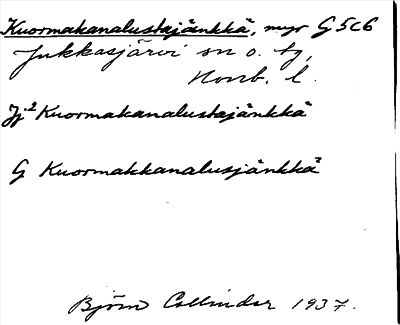 Kuormakanalustajänkkä, myr G5c6
Jukkasjärvi sn o. tg,
Norrb. l.
Jj² Kuormakanalustajänkkä
G Kuormakkanalusjänkkä²
Björn Collinder 1937.